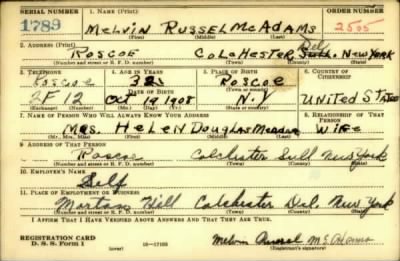 SERIAL NUMBER 1. NAME (Print) ORDER NUMBER
1789 MELVIN RUSSEL McADAMS 2505
(First) (Middle) (Last)
2. ADDRESS (Print)
ROSCOE COLCHESTER Del. Sull. NEW YORK
(Number and street or R. F. D. number) (Town) (County) (State)
3. TELEPHONE 4. AGE IN YEARS 5. PLACE OF BIRTH 6. COUNTRY OF CITIZENSHIP
Roscoe 32 Roscoe
DATE OF BIRTH (Town or county)
2F12 Oct 19 1908 N.Y United States
(Exchange) (Number) (Mo.) (Day) (Yr.) (State or country)
7. NAME OF PERSON WHO WILL ALWAYS KNOW YOUR ADDRESS 8. RELATIONSHIP OF THAT PERSON
Mrs. Helen Douglas McAdams Wife
(Mr., Mrs., Miss) (First) (Middle) (Last)
9. ADDRESS OF THAT PERSON
Roscoe Colchester Sull New York
(Number and street or R. F. D. number) (Town) (County) (State)
10. EMPLOYER'S NAME
Self
11. PLACE OF EMPLOYMENT OR BUSINESS
Hill Colchester Del. New York
(Number and street or R. F. D. number) (Town) (County) (State)
I AFFIRM THAT I HAVE VERIFIED ABOVE ANSWERS AND THAT THEY ARE TRUE.
REGISTRATION CARD
D. S. S. Form 1 16—17105 Melvin Russel McAdams
(Registrant's signature)